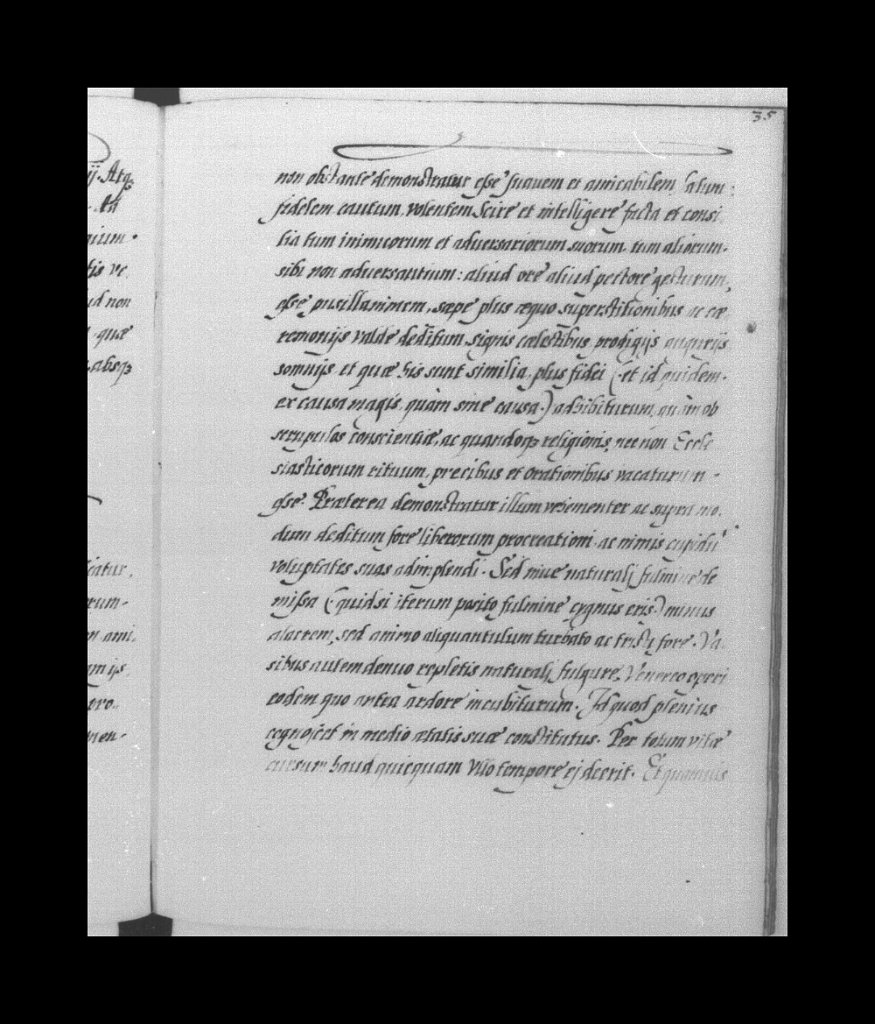 35
ij. Atq
non obstante demonstratur esse suauem et amicabilem
fidelem cautum, volentem scire et intelligere facta et consi
lia tum inimicorum et adversariorum suorum, tum aliorum
sibi non adversantium: aliud ore aliud pectore gesturum,
esse pusillanimem, sæpe plus æquo superstitionibus ac cæ
remoniis valde deditum, signis cælestibus prodigijs augurijs
somnijs et quæ his sunt similia, plus fidei (et id quidem
ex causa magis, quàm sine causa) adhibiturum, quàm ob
scrupulos conscientiæ, ac quandoq religionis, nec non Eccle
siasticorum rituum, precibus et orationibus vacaturum
esse. Præterea demonstratur illum vehementer ac supra mo
dum deditum fore liberorum procreationi ac nimis cupidū
voluptates suas adimplendi. Sed niue naturali fulmine de
missa (quid si iterum posito fulmine cygnus eris) minus
alacrem, sed animo aliquantulum turbato ac tristi fore. Va
sibus autem denuo repletis naturali fulgure, Venereo operi
eodem quo antea ardore incubiturum. Id quod plenius
cognoscet in medio ætatis suæ constitutus. Per totum vitæ
cursum haud quicquam vllo tempore ej deerit. Et quamuis